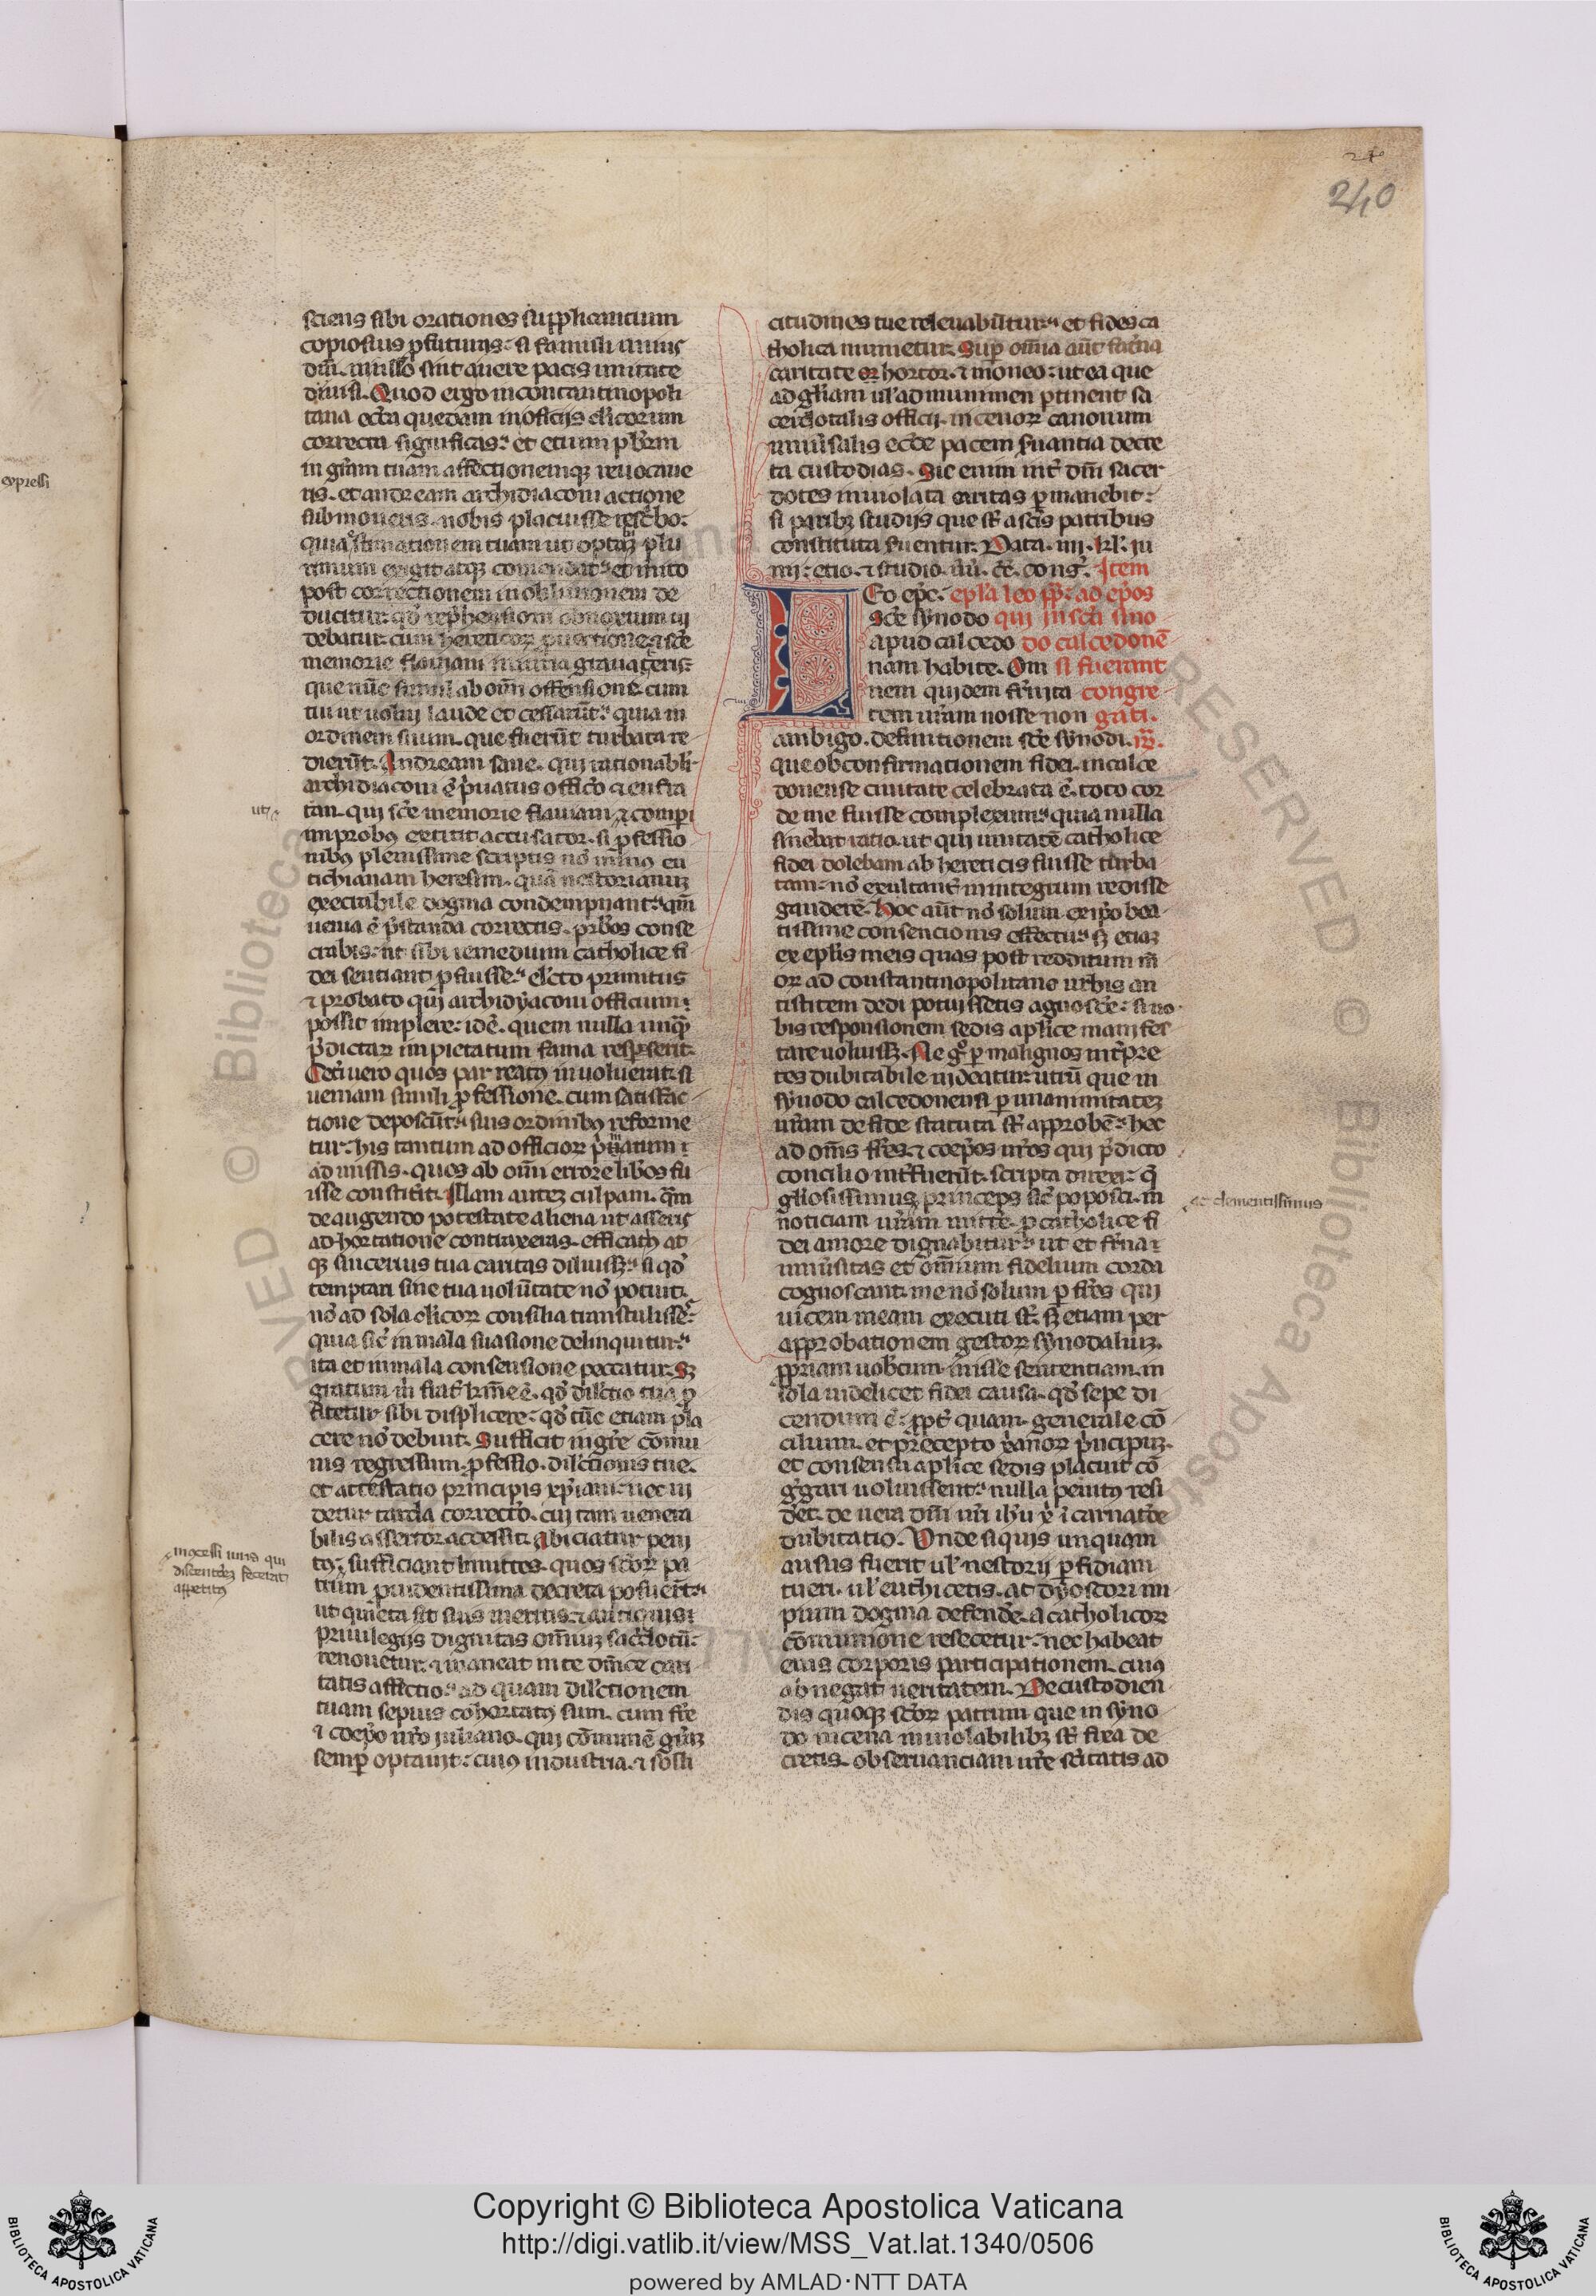 240
sciens sibi orationes supplicantium
copiosius ꝓfuturus: si famuli unius
dn̄i. nullo sint auere pacis unitate
diuisi. Quod ergo in constantinopoli
tana eccl̄ia quedam in oficijs cl̄icorum
correcta significas: et etium
in gr̄am tuam affectionemqꝫ reuocaue
ris. et andream archidiaconi actione
submoueris. nobis placuisse rescͥbo:
quia estimationem tuam ut optamꝰ plu
rimum erigit atqꝫ comendat: et merito
post correctionem in obliuionem de
ducitur: qd̓ rep̄hensioni obnoxium ui
debatur: cum hereticorꝝ
memorie flauiani iniuria grauaueris:
que nūc simul ab om̄i offensione. cum
tui ut uolui laude et cessarūt: quia in
ordinem suum. que fuerūt turbata re
dierūt. Andream sane. qui rationabil̓r
archidiaconi ē p̓uatus officio
tan. qui sc̄e memorie flauiani
improbꝰ extitit accusator. si ꝓfessio
nibꝰ plenissime scriptis nō minꝰ eu
tichianam heresim. quā nestorianuꝫ
execrabile dogma condempnant: qm̄
uenia ē p̓standa correctis. pr̄bos conse
crabis: ut sibi remedium catholice fi
dei sentiant ꝓfuisse: el̓cto primitus
⁊ probato qui archidyaconi officium
possit implere: idē. quem nulla unqͣ
p̓dictarꝝ impietatum fama resperserit.
Ceteri uero quos par reatꝰ inuoluerat: si
ueniam simili ꝓfessione. cum satisfac
tione deposcūt: suis ordinibꝰ reforme
tur: his tantum ad officiorꝝ p̓matum
admissis. quos ab om̄i errore liberos fu
isse constiterit. Illam autem culpam. quam
de augendo potestate aliena ut asseris
adhortatione contraxeras. efficatiꝰ at
qꝫ sincerius tua caritas diluissꝫ: si qd̓
temptari sine tua uolūtate nō potuit.
nō ad sola cl̓icorꝝ consilia transtulisses:
quia sic̄ in mala suasione delinquitur:
ita et in mala consensione peccatur. Sꝫ
gratum
fitetur sibi displicere: qd̓ tūc etiam pla
cere nō debuit. Sufficit in gr̄e cōmu
nis regressum. ꝓfessio. dil̓ctionis tue.
et attestatio principis xp̄iani: nec ui
detur tarda correctio. cui tam uenera
bilis assertor accessit. Abiciatur peni
tꝰ; sufficiant limites. quos sc̄orꝝ pa
trum prudentissima decreta posuerūt:
ut quieta sit suis meritis
priuilegijs dignitas om̄iuꝫ sacerdotū:
renouetur. ⁊ maneat in te dn̄ice cari
tatis affectio: ad quam dil̓ctionem
tuam sepius cohortatꝰ sum. cum fr̄e
⁊ coep̄o nr̄o iuliano. qui cōmunē gr̄aꝫ
semper optauit: cuiꝰ industria. ⁊ solli
citudines tue releuabūtur: et fides ca
tholica munietur. Super om̄ia aūt sac̄rna
caritate or hortor. ⁊ moneo: ut ea que
ad gl̄iam ul̓ ad munimen ꝑtinent sa
cerdotalis officij. in tenorꝝ canonum
uniūsalis eccl̄e pacem s̓uantia decre
ta custodias. Sic enim int̓ dn̄i sacer
dotes inuiolata caritas ꝑmanebit:
si paribꝫ studijs que sūt a sc̄is patribus
constituta s̓uentur. Data. iiij. kl̓. iu
nij. etio. ⁊ studio. uū. cc̄. cons̓. Item
Eo ep̄c. epl̄a leo pp̄: ad ep̄os
Sc̄e synodo qui in sc̄a sino
apud calcedo do calcedonē
nam habite. Om si fuerant
nem quidem fr̄nita congre
tem ur̄am nosse non gati.
ambigo. definitionem sc̄e synodi.
que ob confirmationem fidei. in calce
donense ciuitate celebrata ē. toto cor
de me fuisse complexum: quia nulla
sinebat ratio. ut qui unitatē catholice
fidei dolebam ab hereticis fuisse turba
tam: nō exultant̓ in integrum redisse
gauderē. Hoc aūt nō solum. ex ip̄o bea
tissime consencionis effectu: sꝫ etiaꝫ
ex epl̄is meis quas post redditum m̄
or ad constantinopolitano urbis an
tistitem dedi potuissetis agnosce̓: si uo
bis responsionem sedis apl̄ice manifes
tare uoluissꝫ. Ne g̊ ꝑ malignos int̓pre
tes dubitabile uideatur: utrū que in
synodo calcedonensi ꝑ unanimitateꝫ
ur̄am de fide statuta sūt approbē: hec
ad om̄s fr̄es. ⁊ coep̄os nr̄os qui p̓dicto
concilio int̓fuerūt. scripta direxi: que
gl̓iosissimus princeps sic̄ poposci. in
noticiam ur̄am mitte̓. ꝓ catholice fi
dei amore dignabitur: ut et fr̄na
uniūsitas et om̄ium fidelium corda
cognoscant. me nō solum ꝑ fr̄es qui
uicem meam executi sūt. sꝫ etiam per
approbationem gestorꝝ synodaliuꝫ.
ꝓpriam uobcum. inisse sententiam. in
sola uidelicet fidei causa. qd̓ sepe di
cendum ē: ꝓpt̓ quam. generale cō
cilium. et precepto xp̄ianorꝝ p̓ncipuꝫ.
et consensu apl̄ice sedis placuit cō
g̓gari uoluissent: nulla penitꝰ resi
det. de uera dn̄i nr̄i ih̄u xp̄i incarnatōe
dubitatio. Unde si quis unquam
ausus fuerit ul̓ nestorij ꝑfidiam
tueri. ul̓ euthicetis. at dyoscori im
pium dogma defende̓. a catholicorꝝ
cōmunione resecetur: nec habeat
eius corporis participationem. cuiꝰ
abnegat ueritatem. De custodien
dis quoqꝫ sc̄orꝝ patrum que in syno
do nicena inuiolabilibꝫ sūt fixa de
cretis. obseruanciam ur̄e sc̄itatis ad
ut
⁊c clementissimus
Copyright © Biblioteca Apostolica Vaticana
http://digi.vatlib.it/view/MSS_Vat.lat.1340/0506
powered by AMLAD·NTT DATA
BIBLIOTECA APOSTOLICA VATICANA
BIBLIOTECA APOSTOLICA VATICANA